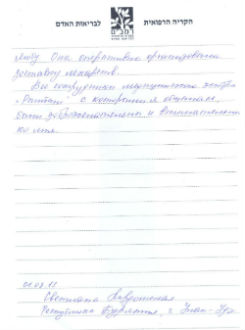 הקריה הרפואית לבריאות האדם
רמב"ם
Она оперативно организовала
доставку лекарств.
Все сотрудники медицинского центра
"Рамбам" с которыми я общалась,
были доброжелательны и внимательны
ко мне.
01.08.11
Светлана
Республика Бурятия, г. Улан-Удэ